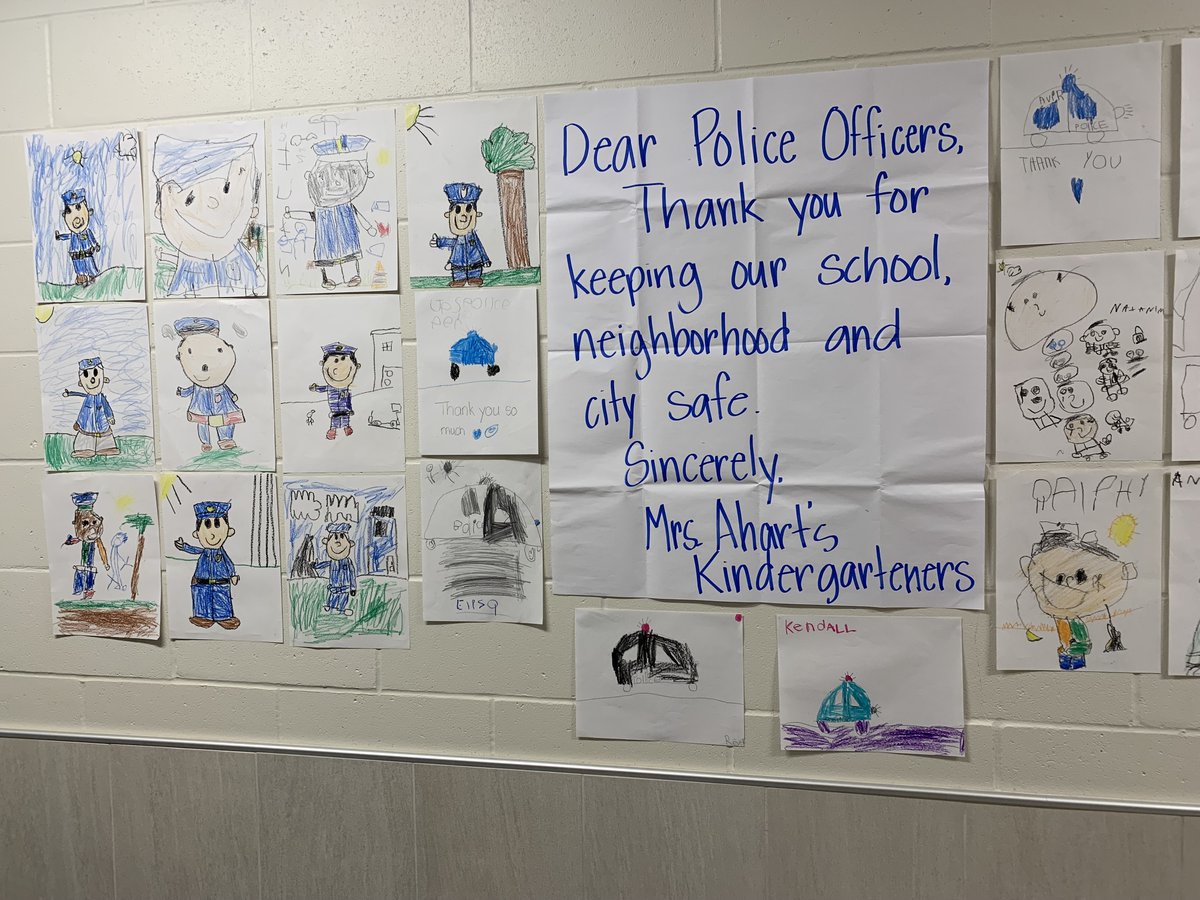 Dear Police Officers,
Thank you for
keeping our school,
neighborhood and
city safe.
Sincerely,
Mrs. Ahart's
Kindergarteners
Thank you so
much
POLICE
THANK YOU
KENDALL